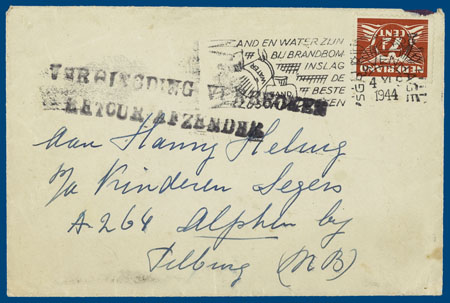 AND EN WATER ZIJN
BIJ BRANDBOM
INSLAG
DE
BESTE
WATER
ZAND
CENT
7½
NEDERLAND
4 VI
1944
VERBINDING VERBROKEN
RETOUR AFZENDER
Aan Hanny Helwig
p/a Kinderen Segers
A 264 Alphen by
Tilburg (NB)